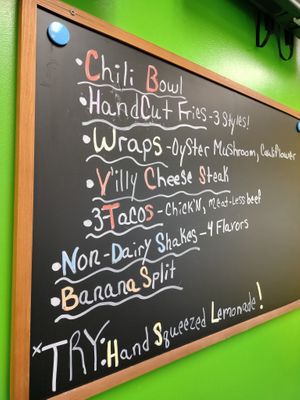 • Chili Bowl
• HandCut Fries - 3 Styles!
• Wraps - Oyster Mushroom, Cauliflower
• V'illy Cheese Steak
• 3 Tacos - Chick'N, Meat-Less beef
• Non-Dairy Shakes - 4 Flavors
• Banana Split
* TRY: Hand Squeezed Lemonade!